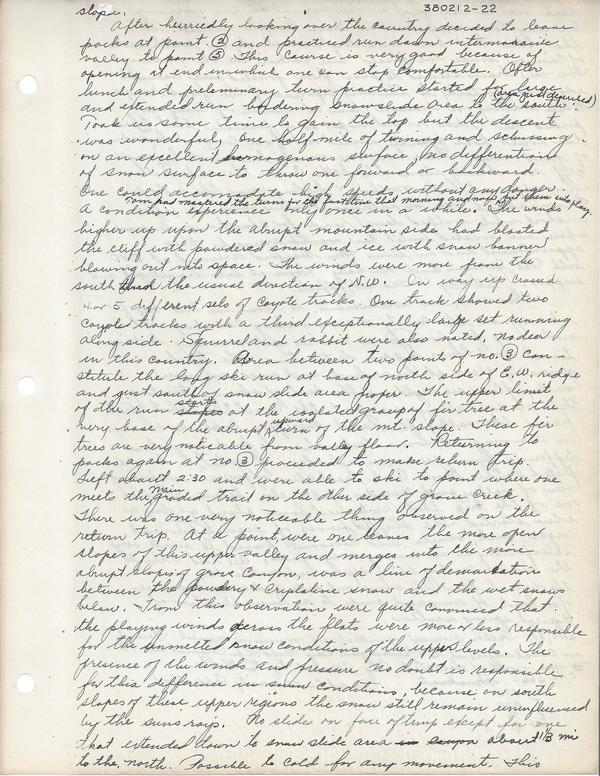 slope.
380212-22
After hurriedly looking over the country decided to leave
packs at point ② and practiced run down intermassive
valley to point ③ This course is very good because of
opening at end in which one can stop comfortable. After
lunch and preliminary turn practice started for large
(area just described)
and extended run bordering snowslide area to the south.
Took us some time to gain the top but the descent
was wonderful, One half mile of turning and schussing
on an excellent homogenous surface, no differention
of snow surface to throw one forward or backward.
One could accomadate high speeds without any danger
Tom had mastered the turns for the first time that morning and now put them into play.
A condition experience only once in a while. The winds
higher up upon the abrupt mountain side had blasted
the cliff with powdered snow and ice with snow banner
blowing out into space. The winds were more from the
south than the usual direction of N.W. On way up crossed
4 or 5 different sets of Coyote tracks. One track showed two
coyote tracks with a third exceptionally large set running
along side. Squirrel and rabbit were also noted, no deer
in this country. Area between two points of no. ③ con-
stitute the long ski run at base of north side of E.W. ridge
and just south of snow slide area proper. The upper limit
of the run starts at the isolated group of fir tree at the
very base of the abrupt upward turn of the mt. slope. These fir
trees are very noticeable from valley floor. Returning to
packs again at no ③ proceeded to make return trip.
Left about 2:30 and were able to ski to point where one
meets the main graded trail on the other side of grove Creek.
There was one very noticeable thing observed on the
return trip. At a point, were one leaves the more open
slopes of this upper valley and merges into the more
abrupt slopes of grove Canyon, was a line of demarkation
between the powdery & cryptaline snow and the wet snows
below. From this observation were quite convinced that
the playing winds across the flats were more or less responsible
for the unmelted snow conditions of the upper levels. The
presence of the winds and pressure no doubt is responsible
for this difference in snow conditions, because on south
slopes of these upper regions the snow still remain uninfluenced
by the suns rays. No slides on face of timp except for one
that extended down to snow slide area about 1/3 mi
to the, north. Possible to cold for any movement. This